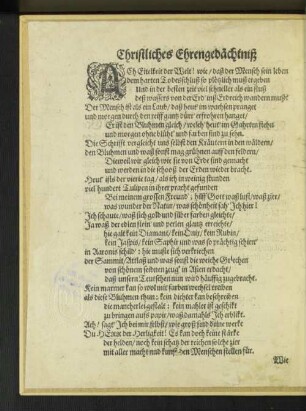 Christliches Ehrengedächtniß
ACh Eitelkeit der Welt! wie/ daß der Mensch sein leben
dem harten Todesschluß so plötzlich muß ergeben
Und in der besten zeit viel schneller als ein fluß
deß wassers von der Erd' uns Erdreich wandern muß?
Der Mensch ist als ein Laub/ daß heut' im wachsen pranget
und morgen durch den reiff gantz dürr' erfrohren hanget/
Er ist den Bluhmen gleich/ welch' heut' im Gahrten stehn
und morgen ohne bild' und farben sind zu sehn.
Die Schrifft vergleicht uns selbst den Kräutern in den wäldern/
den Bluhmen und waß sonst mag grühnen auff den feldern/
Dieweil wir gleich wie sie von Erde sind gemacht
und werden in die schooß der Erden wieder bracht.
Heut' ists der vierte tag/ als ich in wenig stunden
viel hundert Tulipen in ihrer pracht gefunden
Bei meinem grossen Freund'; hilff Gott waß lust/ waß zier/
was wunder der Natur/ waß schönheit sah' Ich hier!
Ich schaute/ waß sich gold und silber farben gleichte/
Ja waß der edlen stein' und perlen glantz erreichte/
hie galt kein Diamant/ kein Onix/ kein Rubin/
kein Jaspis/ kein Saphir und was so prächtig schien'
in Aarons schild'; hie muste sich verkriechen
der Sammit/ Atlaß und waß sonst die weiche Griechen
von schönem seidnen zeug' in Asien erdacht/
daß unsern Teutschen nun wird häuffig zugebracht.
Kein marmer kan so wol mit farben wechsel treiben
als diese Bluhmen thun; kein dichter kan beschreiben
die mancherlei gestalt; kein mahler ist geschikt
zu bringen auffs papir/ waß damahls Ich erblikt.
Ach! sagt' Ich bei mir selbst/ wie groß sind deine werke
Du HErr der Herligkeit! Es kan doch keine stärke
der helden/ noch kein schatz der reichen solche zier
mit aller macht und kunst den Menschen stellen für.
Wie